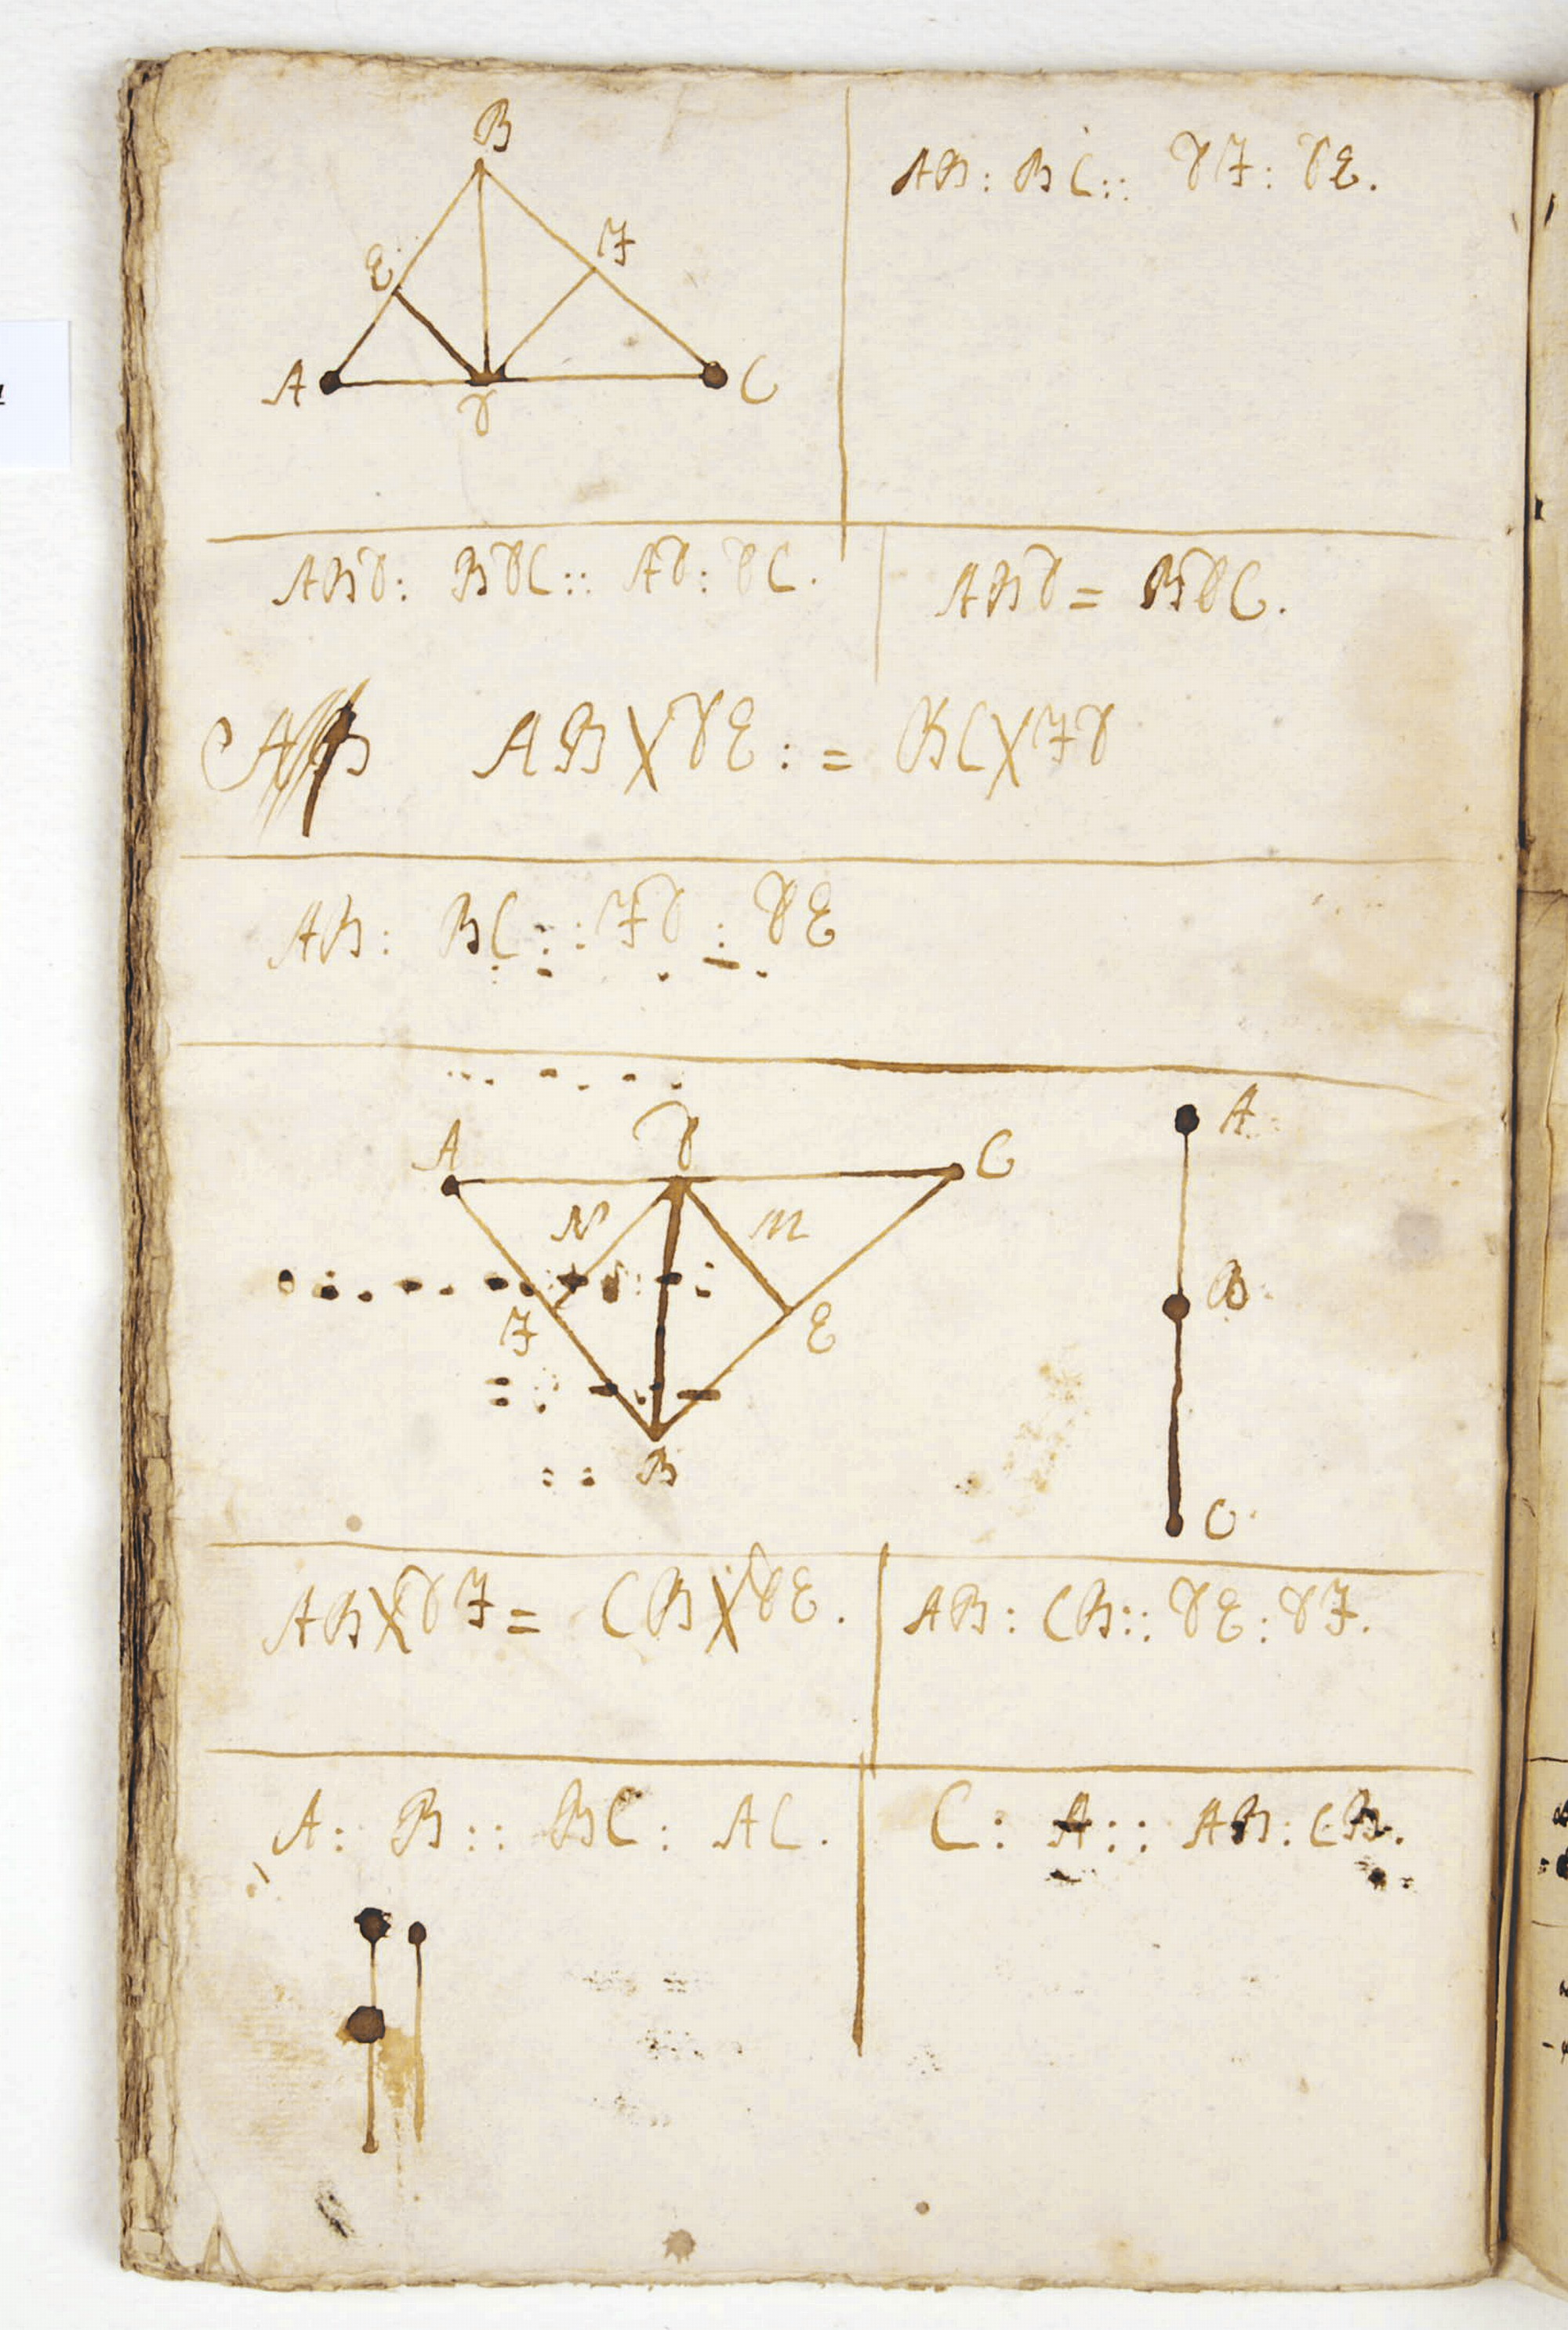 B
E
F
A
D
C
AB: BC:: DF: DE.
ABD: BDC:: AD: DC.
ABD = BDC.
AB
AB X DE : = BC X FD
AB: BC :: FD : DE
A
D
C
N
M
F
E
B
A
B
C
AB X DF = CB X DE.
AB: CB:: DE: DF.
A: B:: BC: AC.
C: A:: AB: CB.